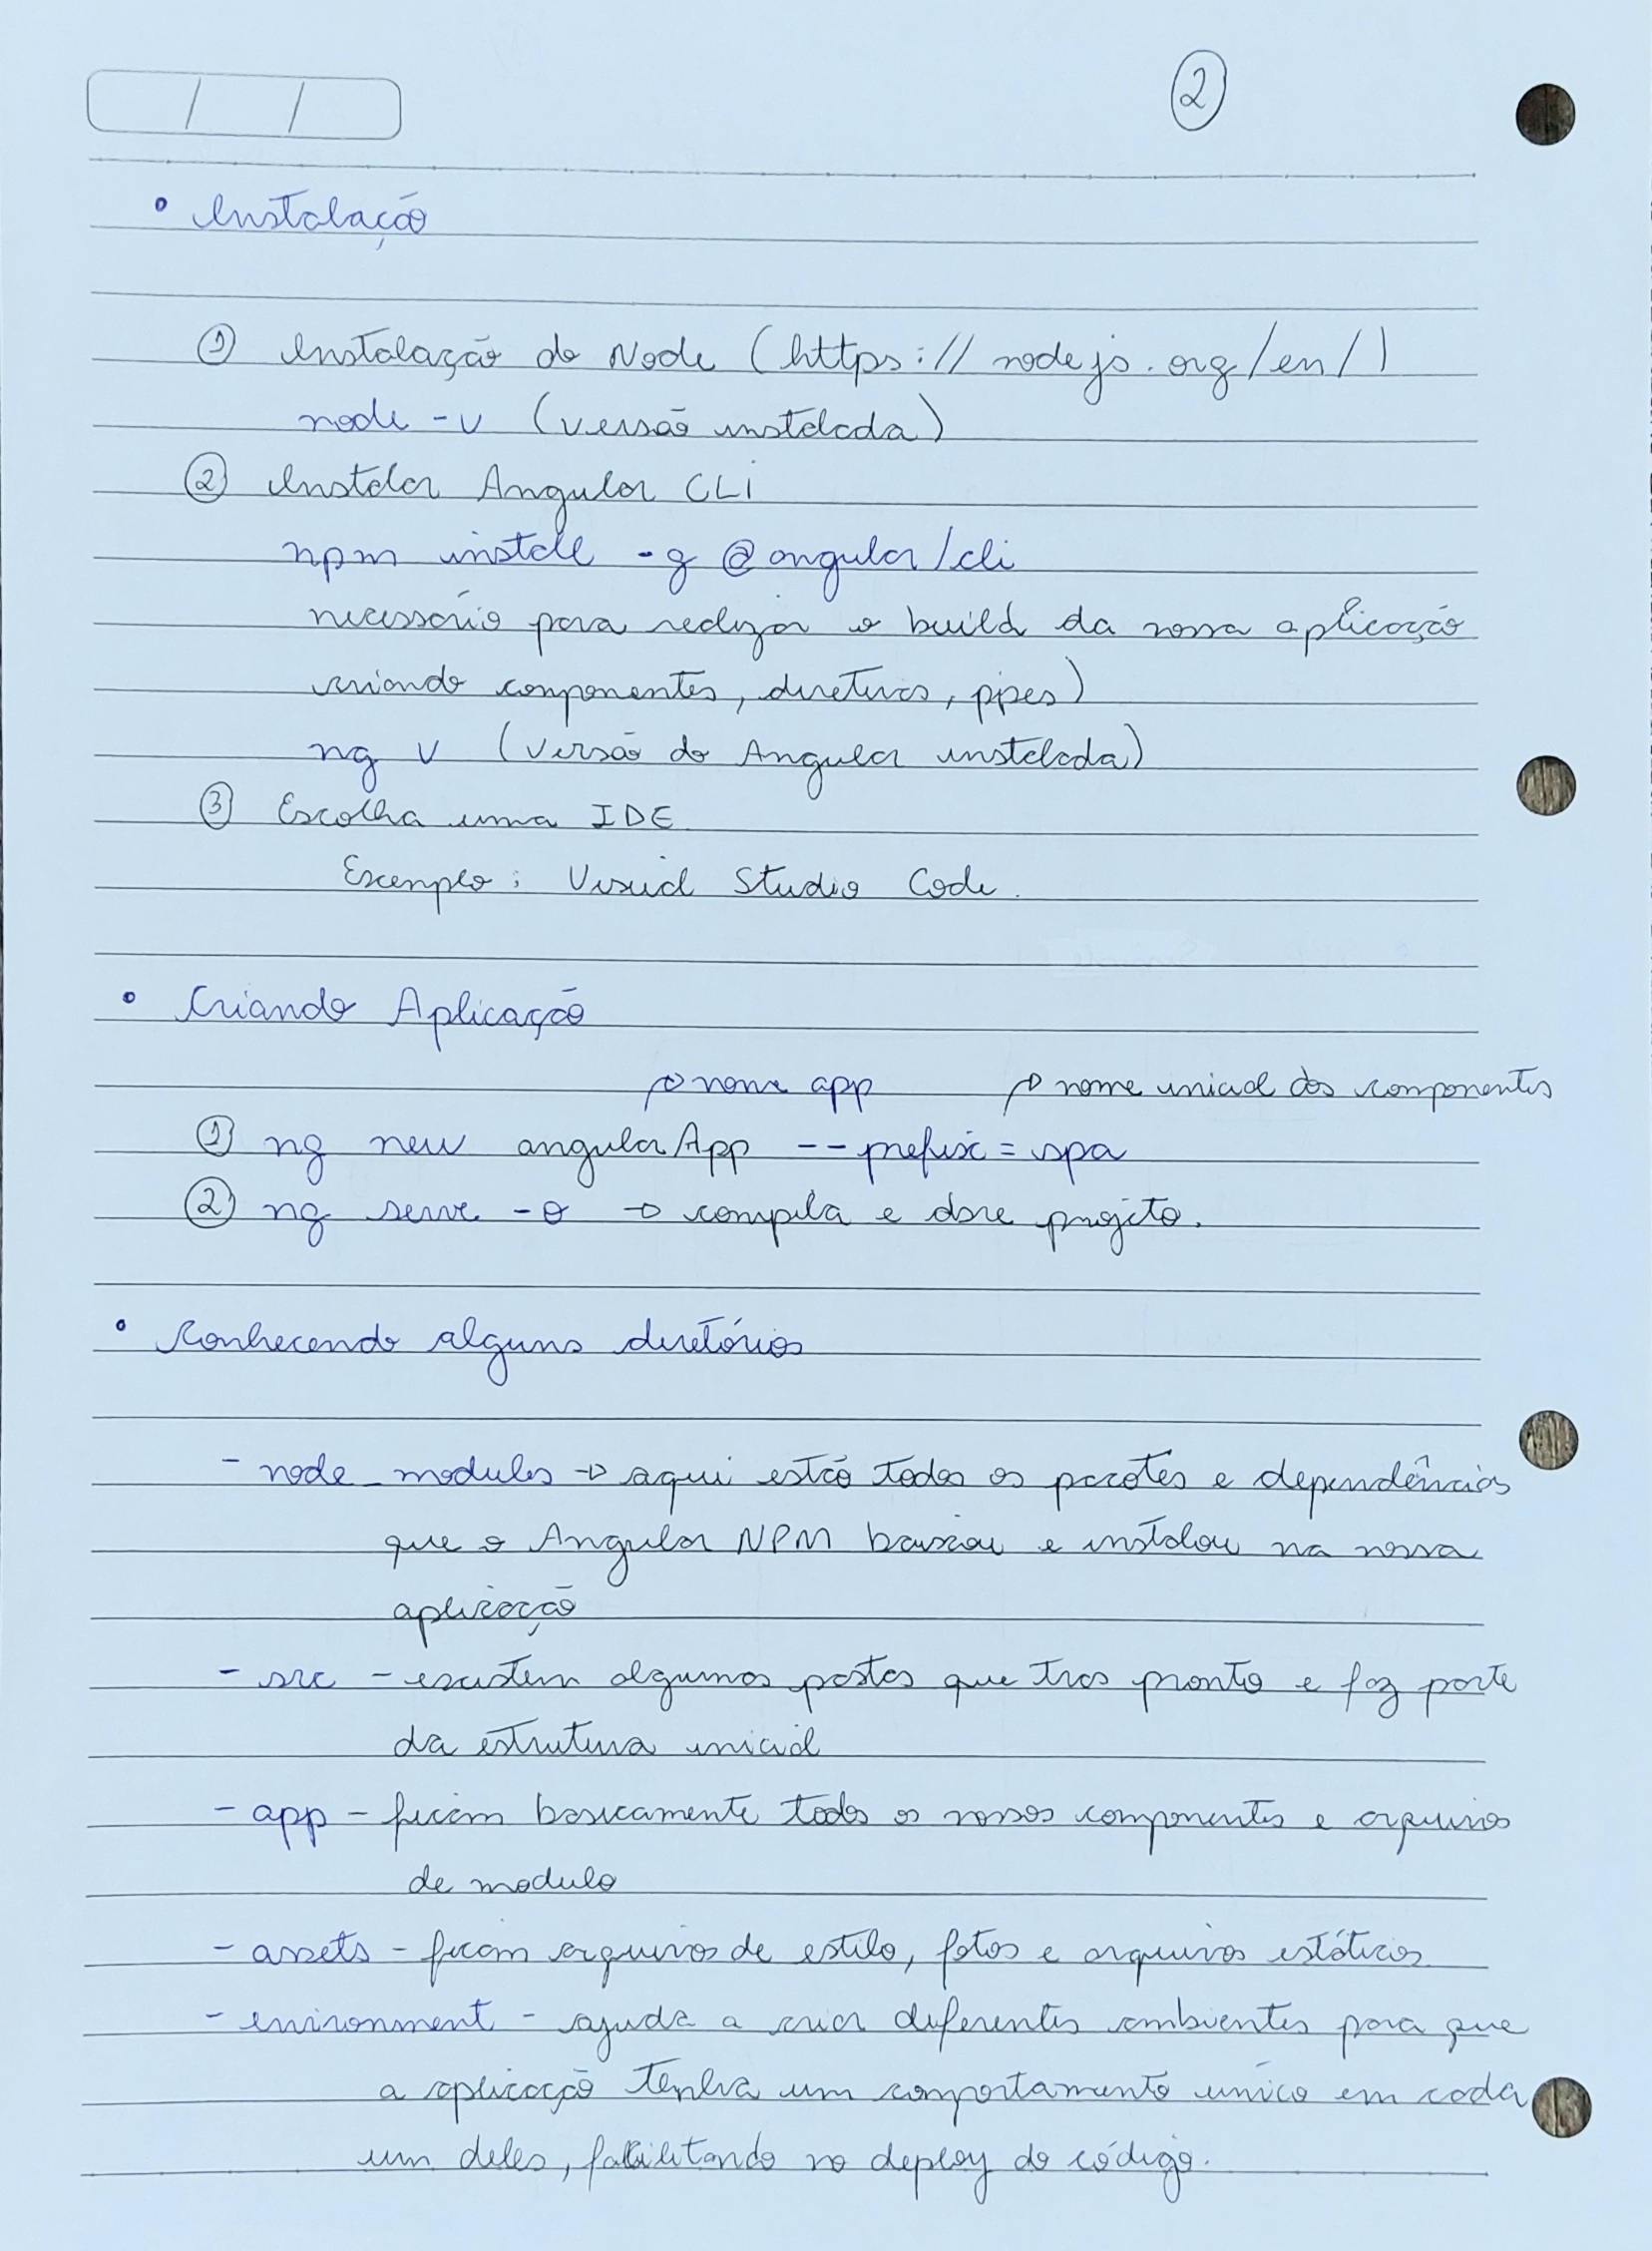 2
• Instalação
① Instalação do Node (https://nodejs.org/en/)
node -v (versão instalada)
② Instalar Angular CLI
npm install -g @angular/cli
necessário para realizar o build da nossa aplicação
criando componentes, diretivas, pipes)
ng v (versão do Angular instalada)
③ Escolha uma IDE
Exemplo: Visual Studio Code.
• Criando Aplicação
nome app nome inicial dos componentes
① ng new angularApp --prefix=spa
② ng serve -o → compila e abre projeto.
• Conhecendo alguns diretórios
- node_modules → aqui estão todos os pacotes e dependências
que o Angular NPM baixou e instalou na nossa
aplicação
- src - existem algumas pastas que tras pronto e faz parte
da estrutura inicial
- app - ficam basicamente todos os nossos componentes e arquivos
de modulo
- assets - ficam arquivos de estilo, fotos e arquivos estáticos
- environment - ajuda a criar diferentes ambientes para que
a aplicação tenha um comportamento único em cada
um deles, facilitando no deploy do código.